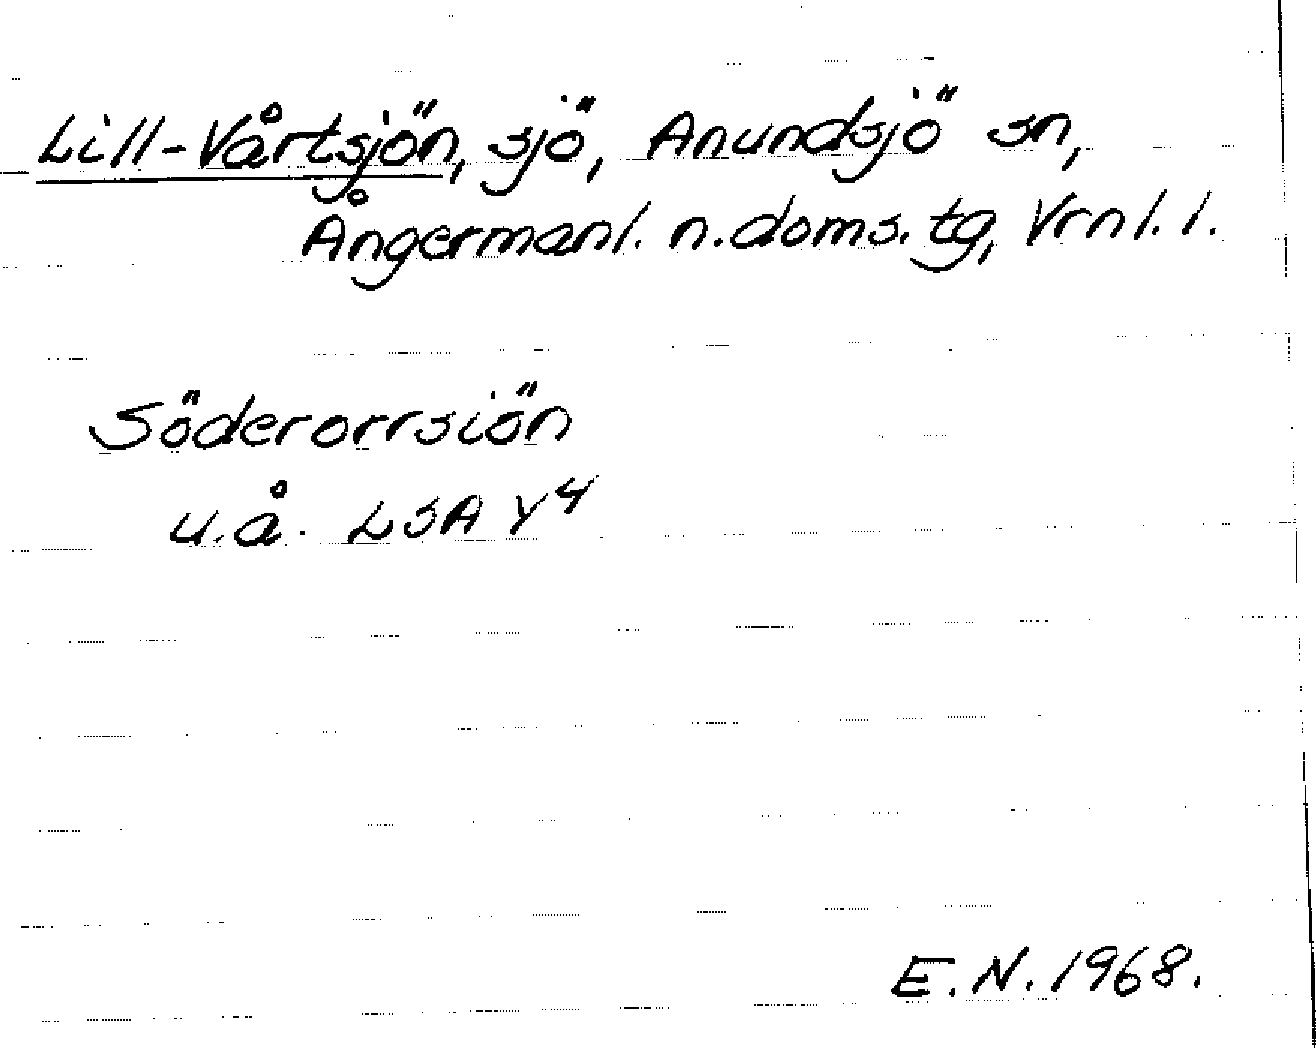 Lill-Vårtsjön, sjö, Anundsjö sn,
Ångermanl. n. doms. tg, Vrnl. l.
Söderorrsiön
u.å. LSA Y4
E.N. 1968.